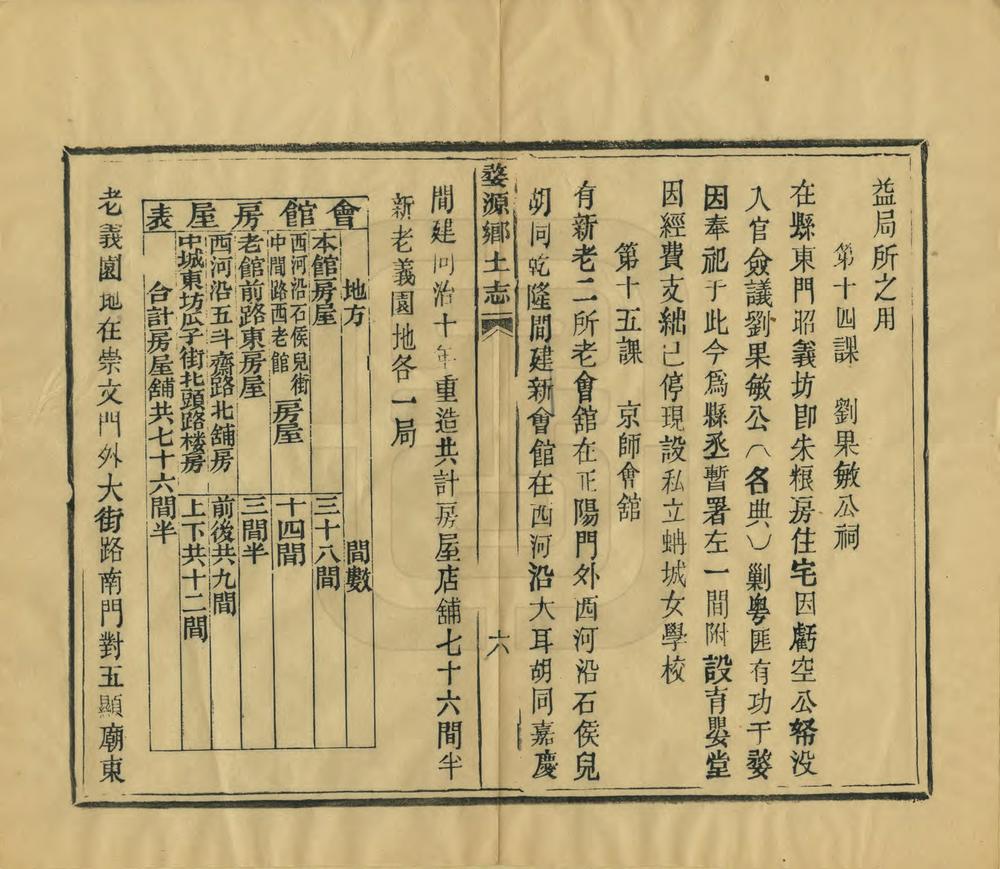 益局所之用
第十四課　劉果敏公祠
在縣東門昭義坊即朱粮房住宅因虧空公帑没
入官僉議劉果敏公（名典）剿粤匪有功于婺
因奉祀于此今爲縣丞暫署左一間附設育嬰堂
因經費支絀已停現設私立蚺城女學校
第十五課　京師會舘
有新老二所老會舘在正陽門外西河沿石侯兒
胡同乾隆間建新會館在西河沿大耳胡同嘉慶
婺源鄉土志
六
間建同治十年重造共計房屋店舖七十六間半
新老義園地各一局
會館房屋表
地方　間數
本館房屋　三十八間
西河沿石侯兒街中間路西老館房屋　十四間
老館前路東房屋　三間半
西河沿五斗齋路北舖房　前後共九間
中城東坊瓜子街北頭路楼房　上下共十二間
合計房屋舖共七十六間半
老義園地在崇文門外大街路南門對五顯廟東